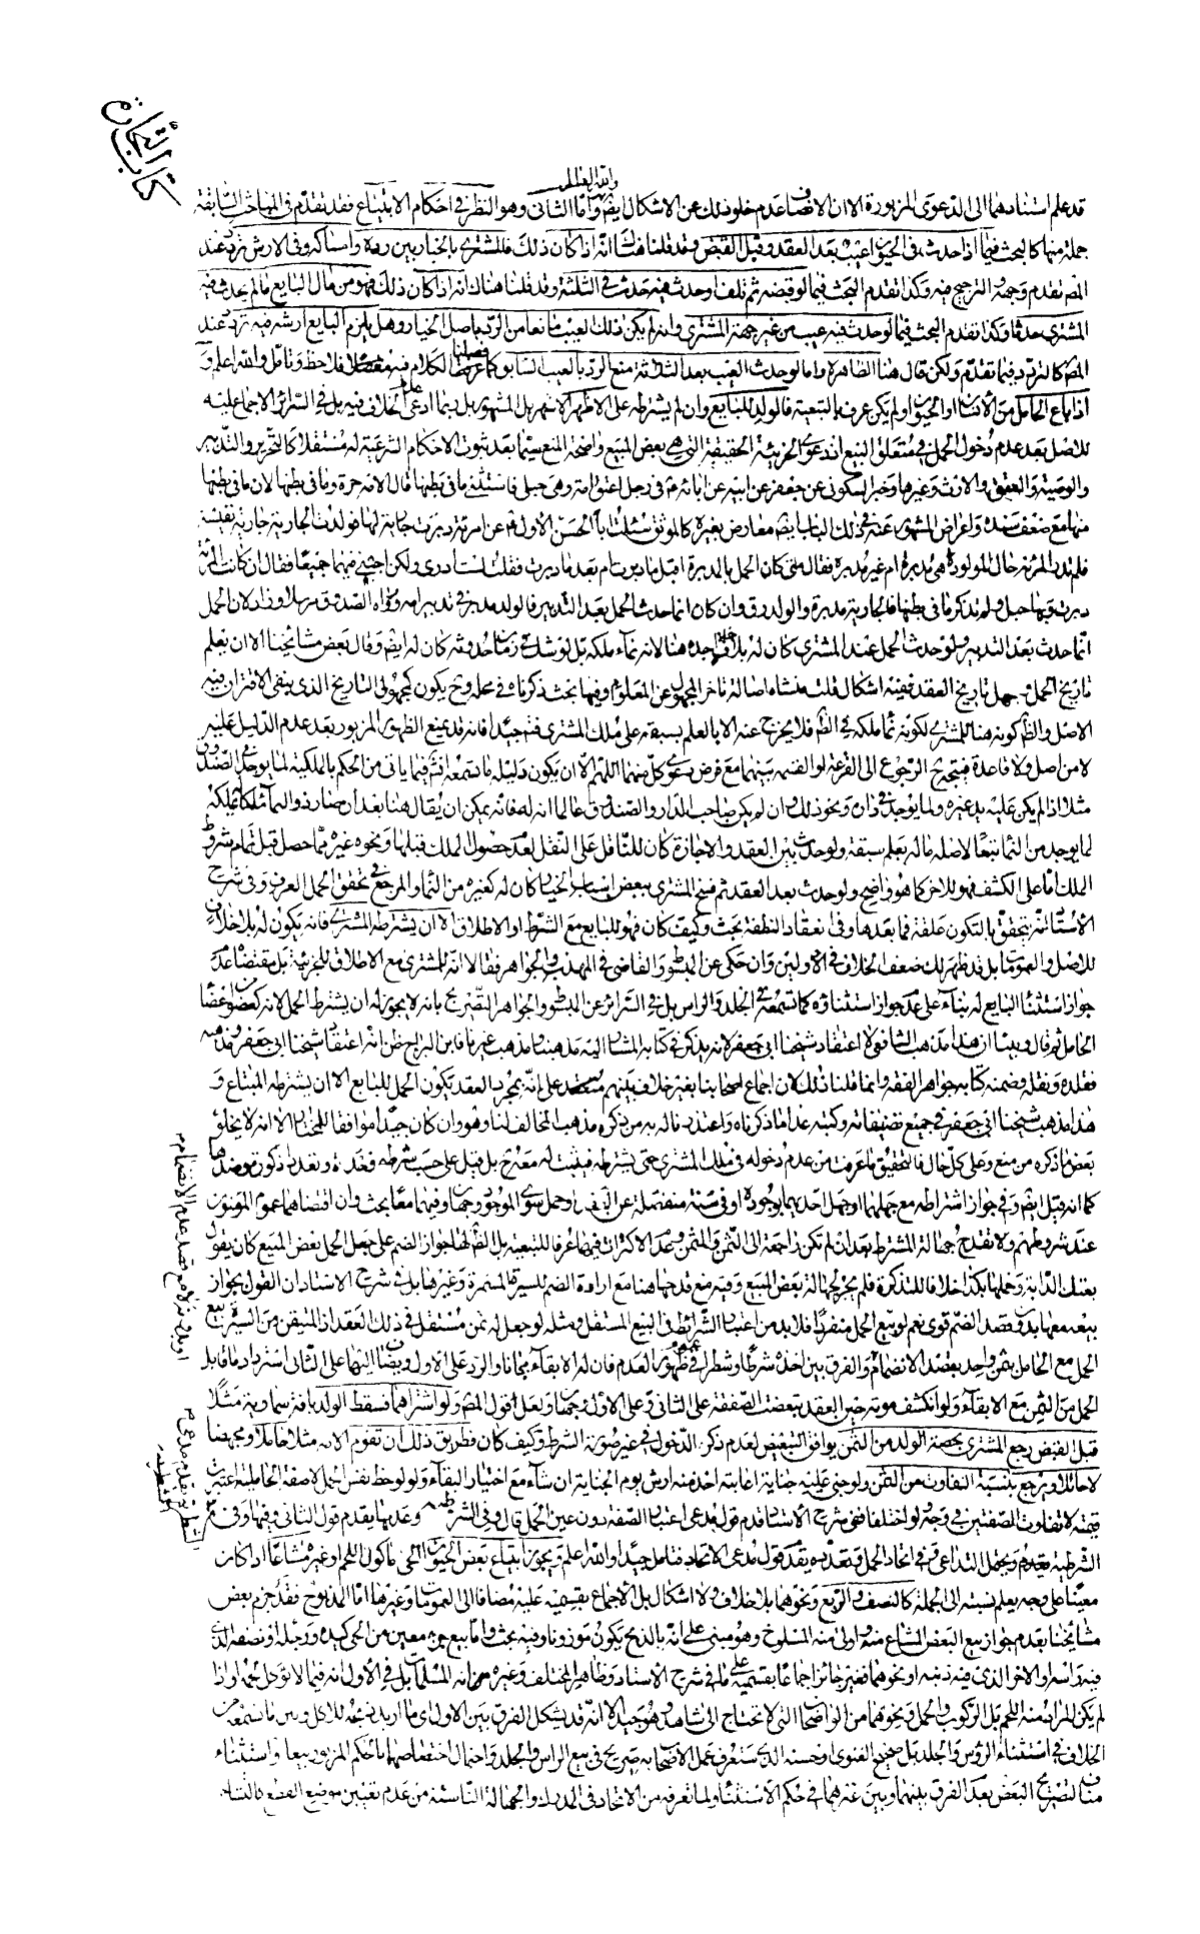 كتاب التجارة
والله العالم
قد علم استنادهما الى الدعوى المزبورة الا ان الانصاف عدم خلو ذلك عن الاشكال ايضا واما الثانى وهو النظر فى احكام الابتياع فقد تقدم فى المباحث السابقة
جملة منها كالبحث فيما اذا حدث فى الحيوان عيب بعد العقد وقبل القبض وقد قلنا هناك انه اذا كان ذلك فالمشترى بالخيار بين رده وامساكه وفى الارش تردد عند
المص تقدم وجهه والترجيح فيه وكذا تقدم البحث فيما لو قبضه ثم تلف او حدث فيه حدث فى الثلثة وقد قلنا هناك انه اذا كان ذلك فهو من مال البايع ما لم يحدث فيه
المشترى حدثا وكذا تقدم البحث فيما لو حدث فيه عيب من غير جهة المشترى وانه لم يكن ذلك العيب مانعا من الرد باصل الخيار وهل يلزم البايع ارشه فيه تردد عند
المص كالتردد فيما تقدم ولكن قال هنا الظاهر لا واما لو حدث العيب بعد الثلاثة منع الرد بالعيب السابق كما عرفت الكلام فيه مفصلا فلاحظ وتامل والله اعلم و
اذا باع الحامل من الانسان او الحيوان ولم يكن عرف بالتبعية فالولد للبايع وان لم يشترطه على الاظهر الاشهر بل المشهور بل ربما ادعى عدم الخلاف فيه بل فى السرائر الاجماع عليه
للاصل بعد عدم دخول الحمل فى متعلق البيع اذ دعوى الجزئية الحقيقية التى هى بعض المبيع واضحة المنع سيما بعد ثبوت الاحكام الشرعية له مستقلا كالتحرير والتدبير
والوصية والعتق والارث وغيرها وخبر السكونى عن جعفر عن ابيه عن ابائه ع فى رجل اعتق امة وهى حبلى فاستثنى ما فى بطنها قال الامة حرة وما فى بطنها لان ما فى بطنها
منها مع ضعف سنده واعراض المشهور عنه فى ذلك الباب ايضا معارض بغيره كالموثق سئلت ابا الحسن الاول ع عن امرئة دبرت جارية لها فولدت الجارية جارية نفيسة
فلم تدر المرئة حال المولودة هى مدبرة ام غير مدبرة فقال متى كان الحمل بالمدبرة اقبل ما دبرت ام بعد ما دبرت فقلت لست ادرى ولكن اجبنى فيهما جميعا فقال ان كانت المرئة
دبرت وبها حبل ولم تذكر ما فى بطنها فالجارية مدبرة والولد رق وان كان انما حدث الحمل بعد التدبير فالولد مدبر فى تدبير امه ورواه الصدوق مرسلا وزاد لان الحمل
انما حدث بعد التدبير ولو حدث الحمل عند المشترى كان له بلا خلاف اجده هنا لانه نماء ملكه بل لو شك فى زمان حدوثه كان له ايضا وقال بعض مشايخنا الا ان يعلم
تاريخ الحمل وجهل تاريخ العقد ففيه اشكال قلت منشاه اصالة تاخر المجهول عن المعلوم وفيها بحث ذكرناه فى محله وح يكون كمجهولى التاريخ الذى ينفى الاقتران فيه
الاصل والظاهر كونه هنا للمشترى لكونه نماء ملكه فى الظاهر فلا يخرج عنه الا بالعلم بسبقه على ملك المشترى فتم جيدا فانه قد يمنع الظهور المزبور بعد عدم الدليل عليه
لا من اصل ولا قاعدة فيتجه ح الرجوع الى القرعة او القسمة بينهما مع فرض دعوى كل منهما اللهم الا ان يكون دليله ما تسمعه ان شاء الله فيما ياتى من الحكم بالملكية لما يوجد فى الصندوق
مثلا اذا لم يكن عليه يد غيره ولما يوجد فى داره ونحو ذلك وان لم يكن صاحب الدار والصندوق عالما انه له فانه يمكن ان يقال هنا بعد ان صار ذو النماء ملكا يملكه
لما يوجد من النماء تبعا لاصله ما لم يعلم سبقه ولو حدث بين العقد والاجازة كان للناقل على النقل لعدم حصول الملك قبلها ونحوه غيره مما حصل قبل تمام شرط
الملك اما على الكشف فهو للاخر كما هو واضح ولو حدث بعد العقد ثم فسخ المشترى ببعض اسباب الخيار كان له كغيره من النماء والمرجع فى تحقق الحمل العرف وفى شرح
الاستاذ انه يتحقق بالتكون علقة فما بعدها وفى انعقاد النطفة بحث وكيف كان فهو للبايع مع الشرط او الاطلاق الا ان يشترطه المشترى فانه يكون له بلا خلاف
للاصل والعمومات بل قد ظهر لك ضعف الخلاف فى الاولين وان حكى عن المبسوط والقاضى فى المهذب والجواهر فقالا انه للمشترى مع الاطلاق للجزئية بل مقتضاه عدم
جواز استثناء البايع له بناء على عدم جواز استثناؤه كما تسمعه فى الجلد والراس بل فى السرائر عن المبسوط والجواهر التصريح بانه لا يجوز له ان يشترط الحمل لانه كعضو من اعضاء
الحامل ثم قال وبينا ان هذا مذهب الشافعى لا اعتقاد شيخنا ابى جعفر لانه يذكر فى كتابه المشار اليه مذهبنا ومذهب غيرنا فابن البراج ظن انه اعتقاد شيخنا ابى جعفر ومذهبه
فقلده ونقله وضمنه كتابه جواهر الفقه وانما قلنا ذلك لان اجماع اصحابنا بغير خلاف بينهم منعقد على انه بمجرد العقد يكون الحمل للبايع الا ان يشترطه المبتاع و
هذا مذهب شيخنا ابى جعفر فى جميع تصنيفاته وكتبه عدا ما ذكرناه واعتذرنا له به من ذكره مذهب المخالف لنا وهو وان كان جيدا موافقا للمختار الا انه لا يخلو
بعض ما ذكره من منع وعلى كل حال فالتحقيق ما عرفت من عدم دخوله فى ملك المشترى حتى يشترطه فيثبت له معه ح بل قيل على حسب شرطه
كما انه قيل ايضا وفى جواز اشتراطه مع جهلهما او جهل احدهما بوجوده او فى سنة منفصلة عن العقد او حمل سوى الموجود وجهان وفيهما معا بحث وان اقتضاهما عموم المؤمنون
عند شروطهم ولا تقدح جهالة المشترط بعد ان لم تكن راجعة الى الثمن والمثمن وعد الاكثرات فيهما عرفا للتبعية بل الظاهر لها جواز الضم على جعل الحمل بعض المبيع كان يقول
بعتك الدابة وحملها بكذا خلافا للتذكرة فلم يجز لجهالة بعض المبيع وفيه منع قدحها هنا مع ارادة الضم للسيرة المستمرة وغيرها بل فى شرح الاستاد ان القول بجواز
بيعه معها بدون قصد الضم قوى نعم لو بيع الحمل منفردا فلا بد من اعتبار الشرائط فى البيع المستقل ومثله لو جعل له ثمن مستقل فى ذلك العقد اذ المتيقن من السيرة بيع
الحمل مع الحامل بثمن واحد بقصد الانضمام والفرق بين اخذه شرطا وشطرا فى ظهور العدم فان له الابقاء مجانا والرد على الاول وينضاف اليهما على الثانى استرداد ما قابل
الحمل من الثمن مع الابقاء ولو انكشف موته حين العقد تبعضت الصفقة على الثانى وعلى الاول وجهان ولعل قول المص ولو اشتراهما فسقط الولد بافة سماوية مثلا
قبل القبض رجع المشترى بحصة الولد من الثمن يوافق التبعيض لعدم ذكر الدخول فى غير صورة الشرط وكيف كان فطريق ذلك ان تقوم الامة مثلا حاملا ومجهضا
لا حائلا ويرجع بنسبة التفاوت من الثمن ولو جنى عليه جناية اعابته اخذ منه ارش يوم الجناية ان شاء مع اختيار البقاء ولو لوحظ نفس الحمل لا صفة الحاملية اعتبرت
قيمته لا تفاوت الصفتين فى وجه ولو اختلفا ففى شرح الاستاد قدم قول مدعى اعتبار الصفة دون عين الحمل قال وفى الشرطية وعدمها يقدم قول الثانى وفيها وفى
الشرطية يقدم ويحتمل التداعى وفى اتحاد الحمل وتعدده يقدم قول مدعى الاتحاد فتامل جيدا والله اعلم ويجوز ابتياع بعض الحيوان الحى ماكول اللحم او غيره مشاعا اذا كان
معينا على وجه يعلم نسبته الى الجملة كالنصف والربع ونحوهما بلا خلاف ولا اشكال بل الاجماع بقسميه عليه مضافا الى العمومات وغيرها اما المذبوح فقد جزم بعض
مشايخنا بعدم جواز بيع البعض المشاع منه واولى منه المسلوخ وهو مبنى على انه بالذبح يكون موزونا وفيه بحث واما بيع جزء معين من الحى كيده ورجله او نصفه الذى
فيه راسه او الاخر الذى فيه ذنبه او نحوهما فغير جائز اجماعا بقسميه على ما فى شرح الاستاد وظاهر المختلف وغيره من انه المسلمات بل فى الاول انه فيما لا يؤكل لحمه او اذا
لم يكن المراد منه اللحم بل الركوب والحمل ونحوهما من الواضحات التى لا تحتاج الى شاهد وهو جيد الا انه قد يشكل الفرق بين الاول اى ما اريد ذبحه للاكل وبين ما تسمعه من
الخلاف فى استثناء الرؤس والجلد بل صحيح الفتوى او حسنه الذى ستعرف عمل الاصحاب به صريح فى بيع الراس والجلد واحتمال اختصاصهما بالحكم المزبور بيعا واستثناء
مناف لتصريح البعض بعدم الفرق بينهما وبين غيرهما فى حكم الاستثناء ولما تعرفه من الاتحاد فى المدرك والجهالة الناشئة من عدم تعيين موضع القطع
او بدونه لا مع قصد عدم الانضمام